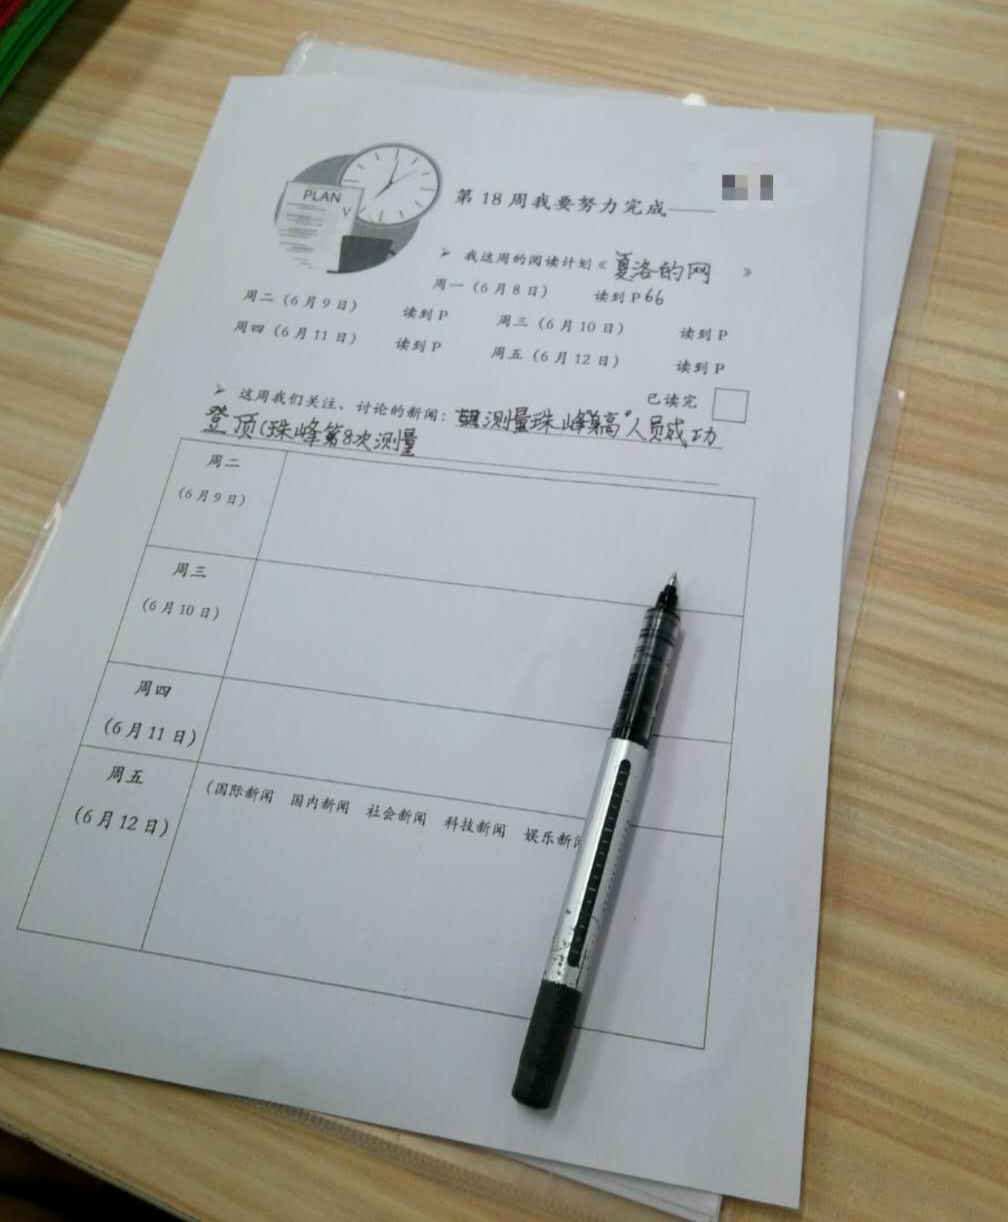 PLAN
第 18 周我要努力完成
➢ 我这周的阅读计划《夏洛的网》
周一（6 月 8 日） 读到 P66
周二（6 月 9 日） 读到 P 周三（6 月 10 日） 读到 P
周四（6 月 11 日） 读到 P 周五（6 月 12 日） 读到 P
已读完
➢ 这周我们关注、讨论的新闻：测量珠峰"身高"人员成功
登顶(珠峰第8次测量
周二
（6 月 9 日）
周三
（6 月 10 日）
周四
（6 月 11 日）
周五
（6 月 12 日）
（国际新闻 国内新闻 社会新闻 科技新闻 娱乐新闻